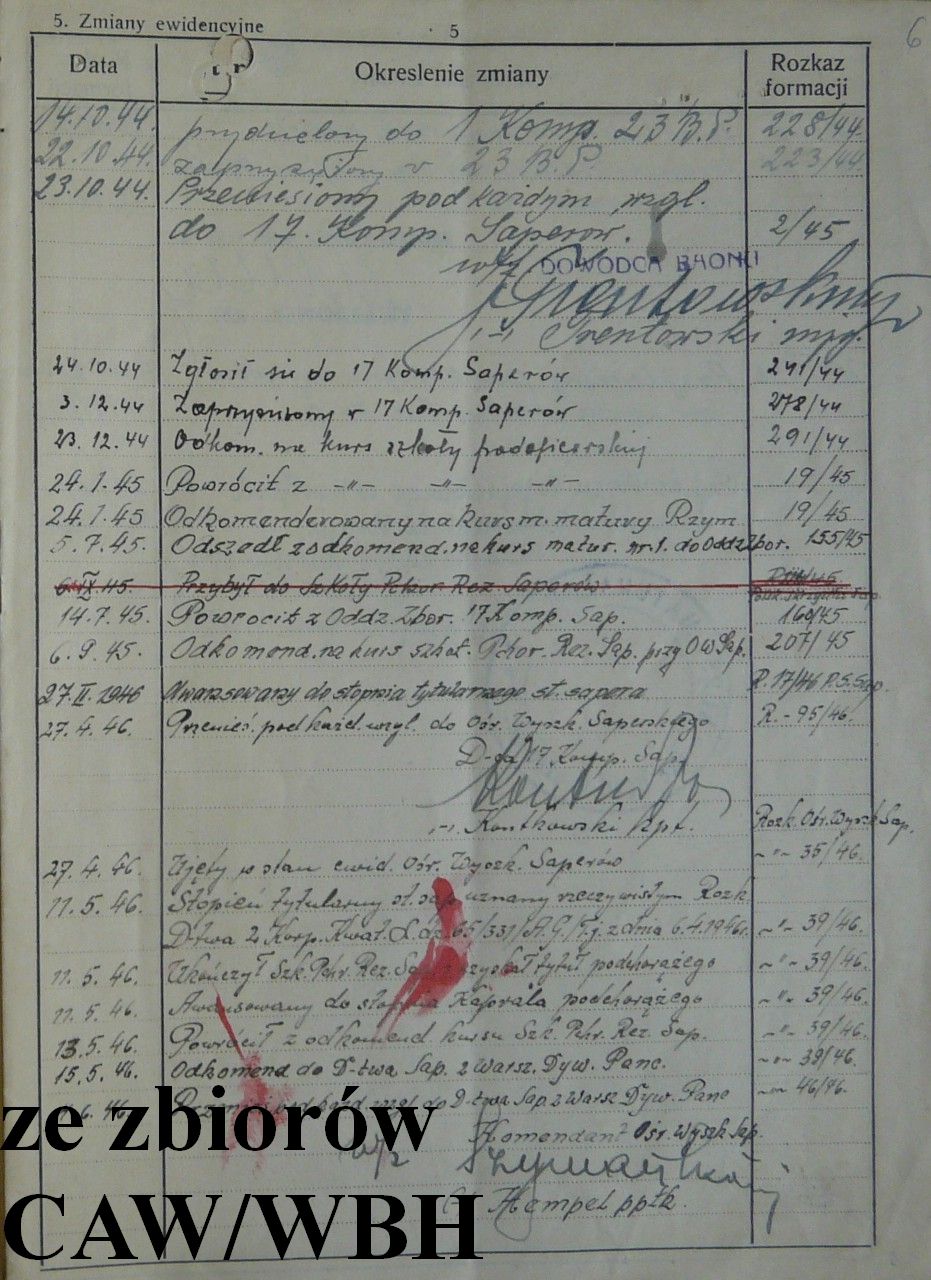 5. Zmiany ewidencyjne
5
6
Data
Nr
Okreslenie zmiany
Rozkaz formacji
14.10.44. przydzielony do 1 Komp. 23 B.P. 228/44.
22.10.44. zaprzysiężony w 23 B.P. 223/44
23.10.44. Przeniesiony pod każdym wzgl.
do 17. Komp. Saperów. 2/45
wz. DOWÓDCA BAONU
/-/ Trentowski mjr.
24.10.44 Zgłosił się do 17 Komp. Saperów 241/44
3.12.44 Zaprzysiężony w 17 Komp. Saperów 278/44
23.12.44 Odkom. na kurs szkoły podoficerskiej 291/44
24.1.45 Powrócił z -"- -"- -"- 19/45
24.1.45 Odkomenderowany na kurs m. matury Rzym 19/45
5.7.45. Odszedł z odkomend. na kurs matur. nr.1. do Oddz Zbor. 155/45
6.IX.45. Przybył do Szkoły Pchor Rez Saperów
14.7.45. Powrócił z Oddz. Zbor. 17 Komp. Sap. 160/45
6.9.45. Odkomend. na kurs szkoł. Pchor. Rez. Sap. przy OW Sap. 207/45
27.II.1946 Awansowany do stopnia tytularnego st. sapera R. 17/46 P.S. Sap.
27.4.46. Przenieś. pod każd. wzgl. do Ośr. Wyszk. Saperskiego R. - 95/46.
D-ca 17 Komp. Sap.
/-/ Kontkowski kpt.
Rozk. Ośr. Wyszk Sap.
27.4.46. Ujęty w stan ewid. Ośr. Wyszk. Saperów ~"~ 35/46.
11.5.46. Stopień tytularny st. sap uznany rzeczywistym Rozk.
D-twa 2 Korp. Kwat. L.dz. 65/331/A.G./Tj. z dnia 6.4.1946r. ~"~ 39/46.
11.5.46. Ukończył Szk. Pchr. Rez. Sap. i uzyskał tytuł podchorążego ~"~ 39/46.
11.5.46. Awansowany do stopnia Kaprala podchorążego ~"~ 39/46.
13.5.46. Powrócił z odkomend kursu Szk. Pchr. Rez. Sap. ~"~ 39/46.
15.5.46. Odkomend do D-twa Sap. 2 Warsz. Dyw. Panc. ~"~ 39/46.
6.46. do D-twa Sap 2 Warsz Dyw. Panc ~"~ 46/46.
Komendant Ośr. Wyszk Sap.
wz
/-/ Hempel ppłk.
ze zbiorów
CAW/WBH